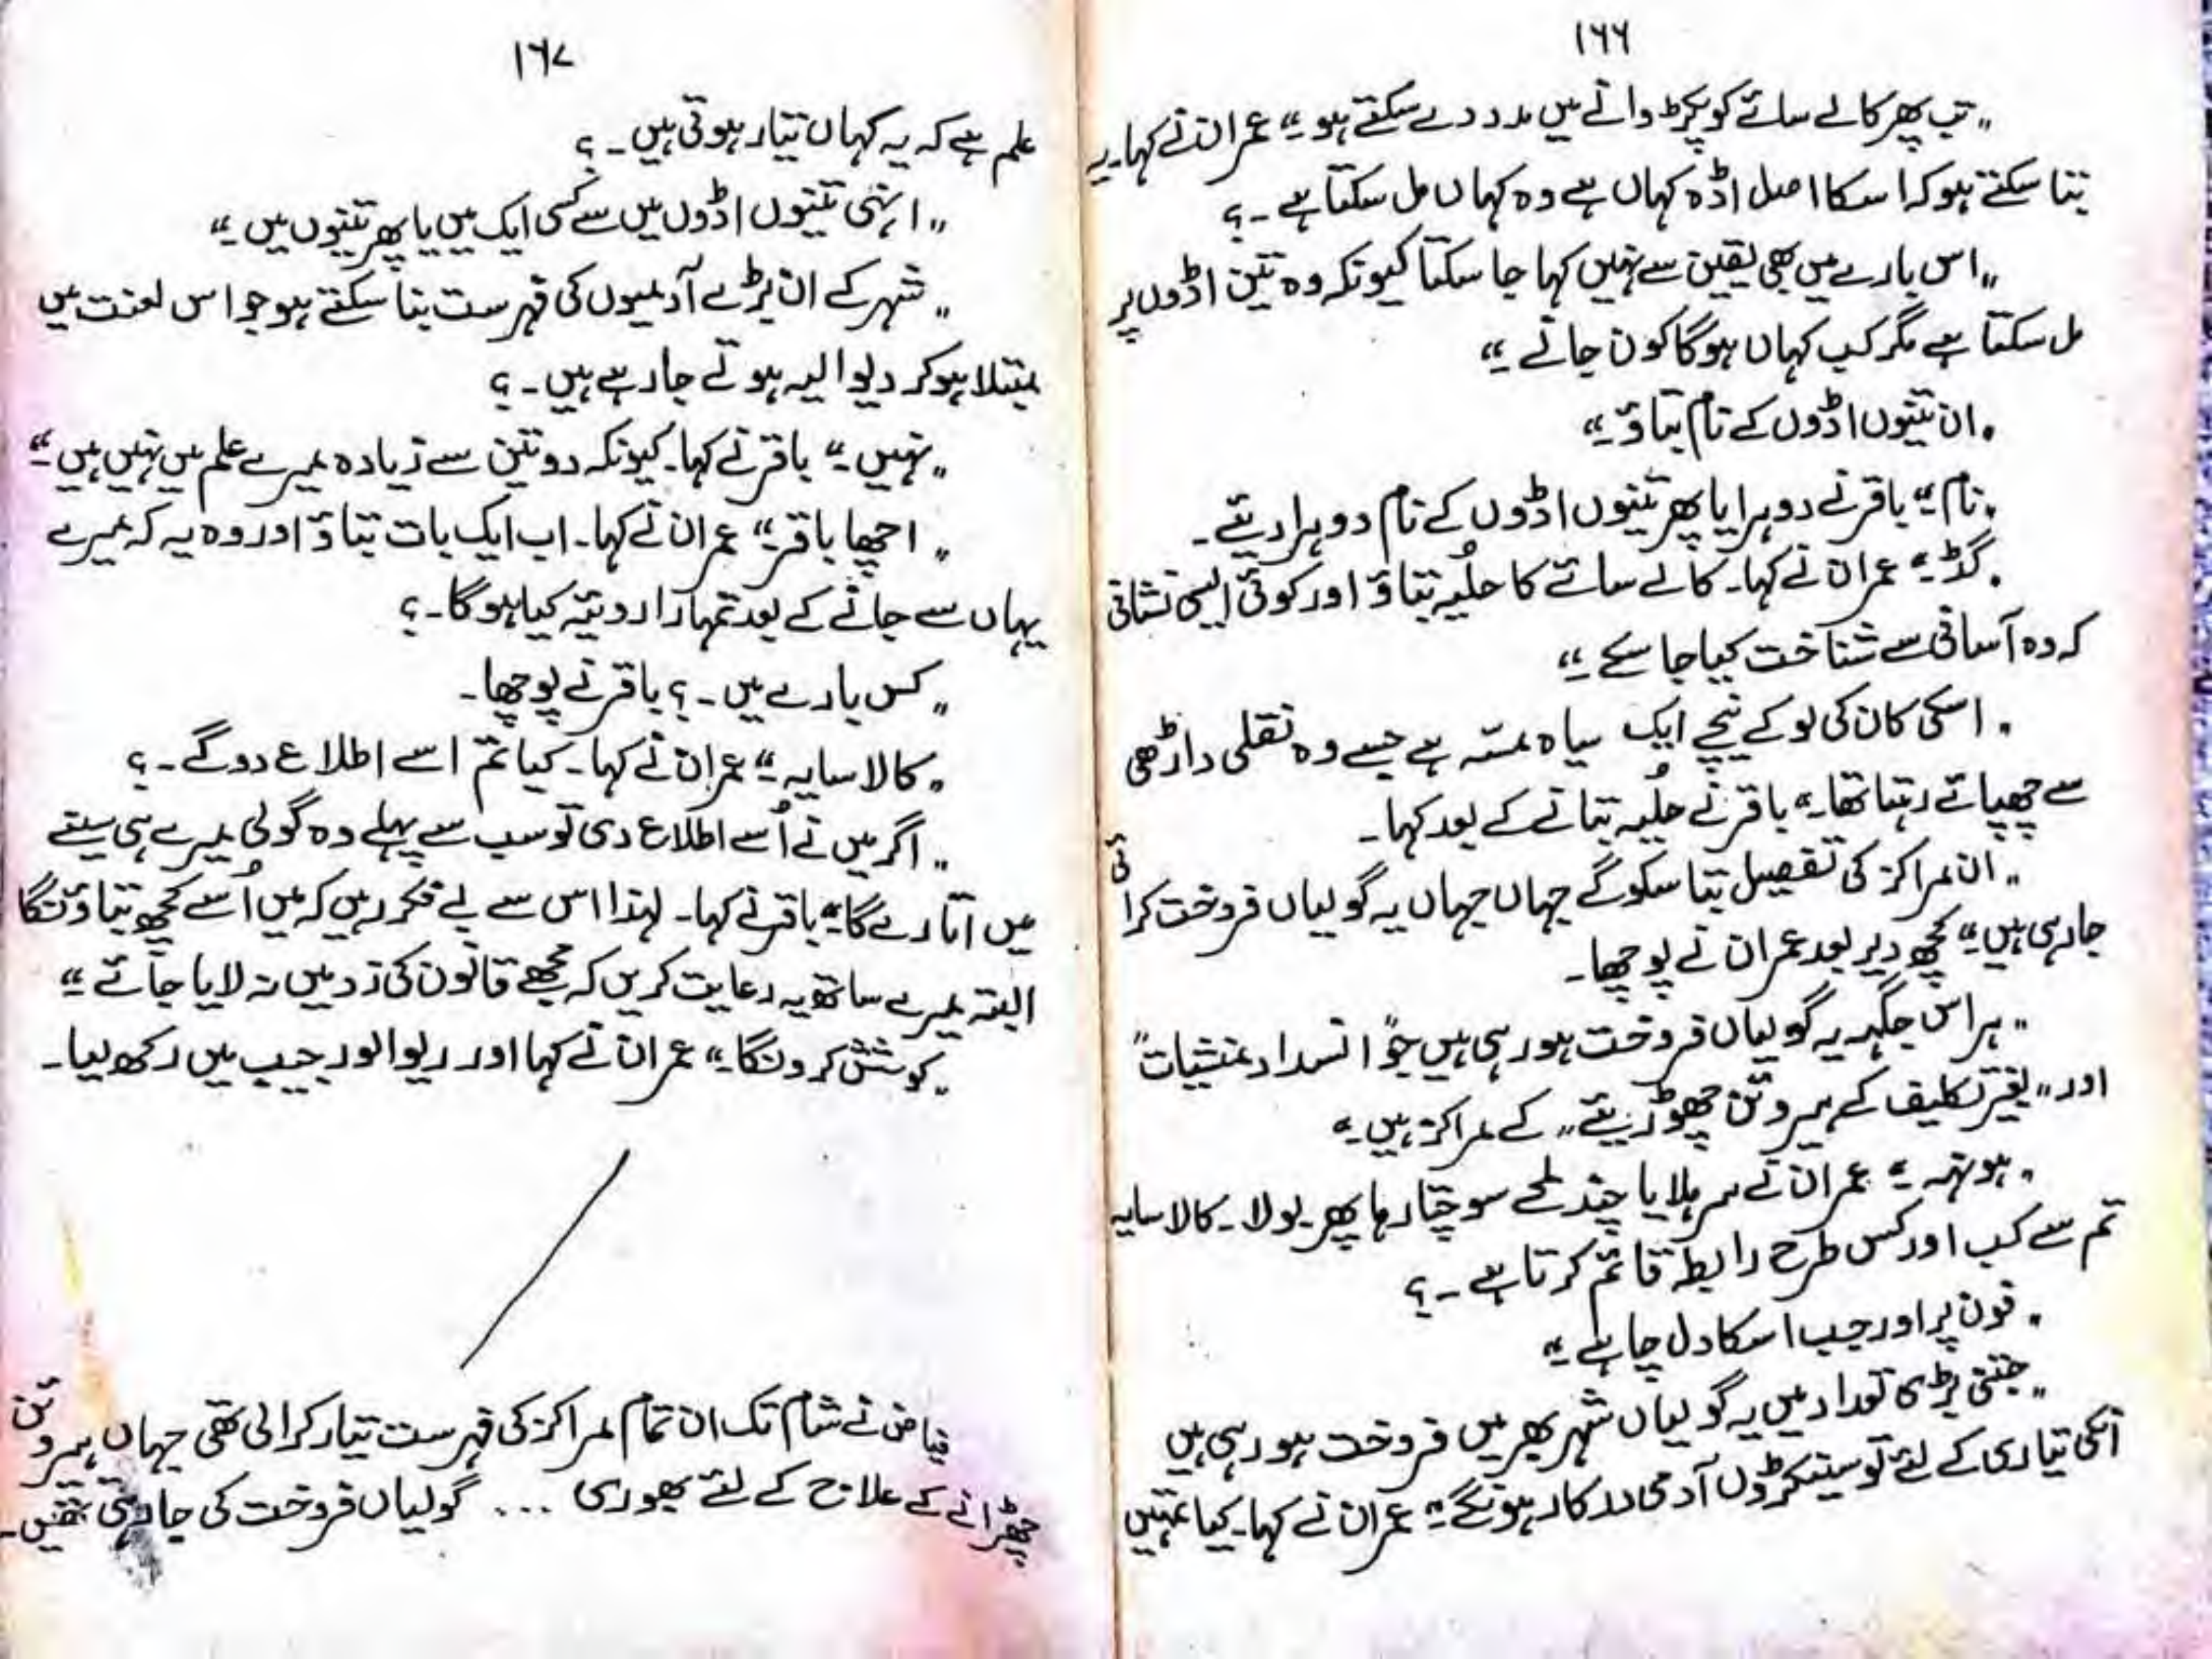 ۱۶۶
„ تب پھر کالے سائے کو پکڑوانے میں مدد دے سکتے ہو ۔“ عمران نے کہا۔ یہ
بتا سکتے ہو کہ اسکا اصل اڈہ کہاں ہے وہ کہاں مل سکتا ہے ۔ ؟
„ اس بارے میں بھی یقین سے نہیں کہا جا سکتا کیونکہ وہ تین اڈوں پر
مل سکتا ہے مگر کب کہاں ہو گا کون جانے ۔“
„ ان تینوں اڈوں کے نام بتاؤ ۔“
„ نام ۔“ باقر نے دوہرایا پھر تینوں اڈوں کے نام دوہرا دیئے ۔
„ گڈ ۔“ عمران نے کہا۔ کالے سائے کا حلُیہ بتاؤ اور کوئی ایسی نشانی
کہ وہ آسانی سے شناخت کیا جا سکے ۔“
„ اسکی کان کی لو کے نیچے ایک سیاہ مسّہ ہے جسے وہ نقلی داڑھی
سے چھپائے رہتا تھا ۔“ باقر نے حلُیہ بتانے کے بعد کہا ۔
„ ان مراکز کی تفصیل بتا سکو گے جہاں جہاں یہ گولیاں فروخت کرائی
جا رہی ہیں ۔“ کچھ دیر بعد عمران نے پوچھا ۔
„ ہر اس جگہ یہ گولیاں فروخت ہو رہی ہیں جو ”انسداد منشیات“
اور „بغیر تکلیف کے ہیروئن چھوڑیئے„ کے مراکز ہیں ۔“
„ ہونہہ ۔“ عمران نے سر ہلایا چند لمحے سوچتا رہا پھر بولا ۔ کالا سایہ
تم سے کب اور کس طرح رابطہ قائم کرتا ہے ۔ ؟
„ فون پر اور جب اسکا دل چاہے ۔“
„ جتنی بڑی تعداد میں یہ گولیاں شہر بھر میں فروخت ہو رہی ہیں
انکی تیاری کے لئے تو سینکڑوں آدمی درکار ہونگے ۔“ عمران نے کہا۔ کیا تمہیں
۱۶۷
علم ہے کہ یہ کہاں تیار ہوتی ہیں ۔ ؟
„ انہی تینوں اڈوں میں سے کسی ایک میں یا پھر تینوں میں ۔“
„ شہر کے ان بڑے آدمیوں کی فہرست بتا سکتے ہو جو اس لعنت میں
مبتلا ہو کر دیوالیہ ہوتے جا رہے ہیں ۔ ؟
„ نہیں ۔“ باقر نے کہا۔ کیونکہ دو تین سے زیادہ میرے علم میں نہیں ہیں ۔“
„ اچھا باقر ۔“ عمران نے کہا۔ اب ایک بات بتاؤ اور وہ یہ کہ میرے
یہاں سے جانے کے بعد تمہارا رویّہ کیا ہو گا ۔ ؟
„ کس بارے میں ۔ ؟ باقر نے پوچھا ۔
„ کالا سایہ ۔“ عمران نے کہا۔ کیا تم اسے اطلاع دو گے ۔ ؟
„ اگر میں نے اُسے اطلاع دی تو سب سے پہلے وہ گولی میرے ہی سینے
میں اتارے گا ۔“ باقر نے کہا۔ لہذا اس سے بے فکر رہیں کہ میں اُسے کچھ بتاؤنگا
البتہ میرے ساتھ یہ رعایت کریں کہ مجھے قانون کی زد میں نہ لایا جائے ۔“
„ کوشش کرونگا ۔“ عمران نے کہا اور ریوالور جیب میں رکھ لیا ۔
فیاض نے شام تک ان تمام مراکز کی فہرست تیار کرالی تھی جہاں ہیروئن
چھڑانے کے علاج کے لئے بھوری ... گولیاں فروخت کی جا رہی تھیں ۔